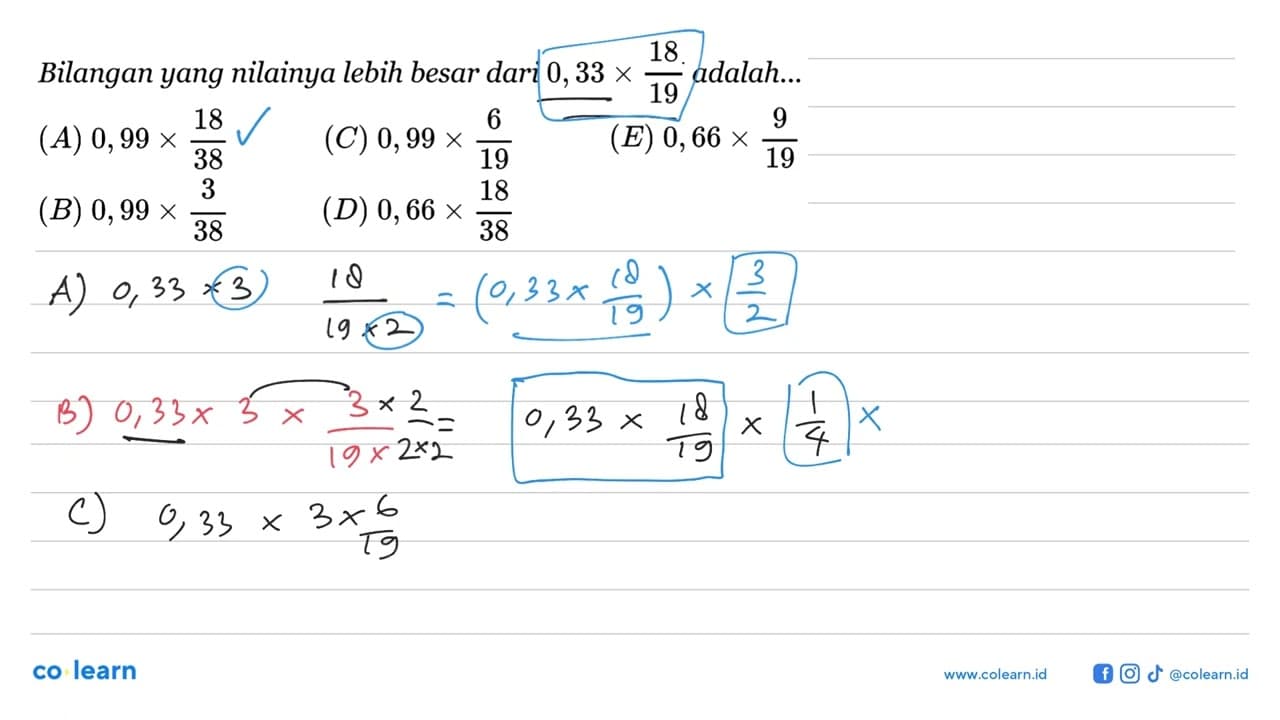 Bilangan yang nilainya lebih besar dari 0,33 × 18/19 adalah...
(A) 0,99 × 18/38 ✓ (C) 0,99 × 6/19 (E) 0,66 × 9/19
(B) 0,99 × 3/38 (D) 0,66 × 18/38
A) 0,33 × 3 18/(19 × 2) = (0,33 × 18/19) × 3/2
B) 0,33 × 3 × 3 × 2/(19 × 2×2) = 0,33 × 18/19 × 1/4 ×
C) 0,33 × 3 × 6/19
co learn
www.colearn.id @colearn.id